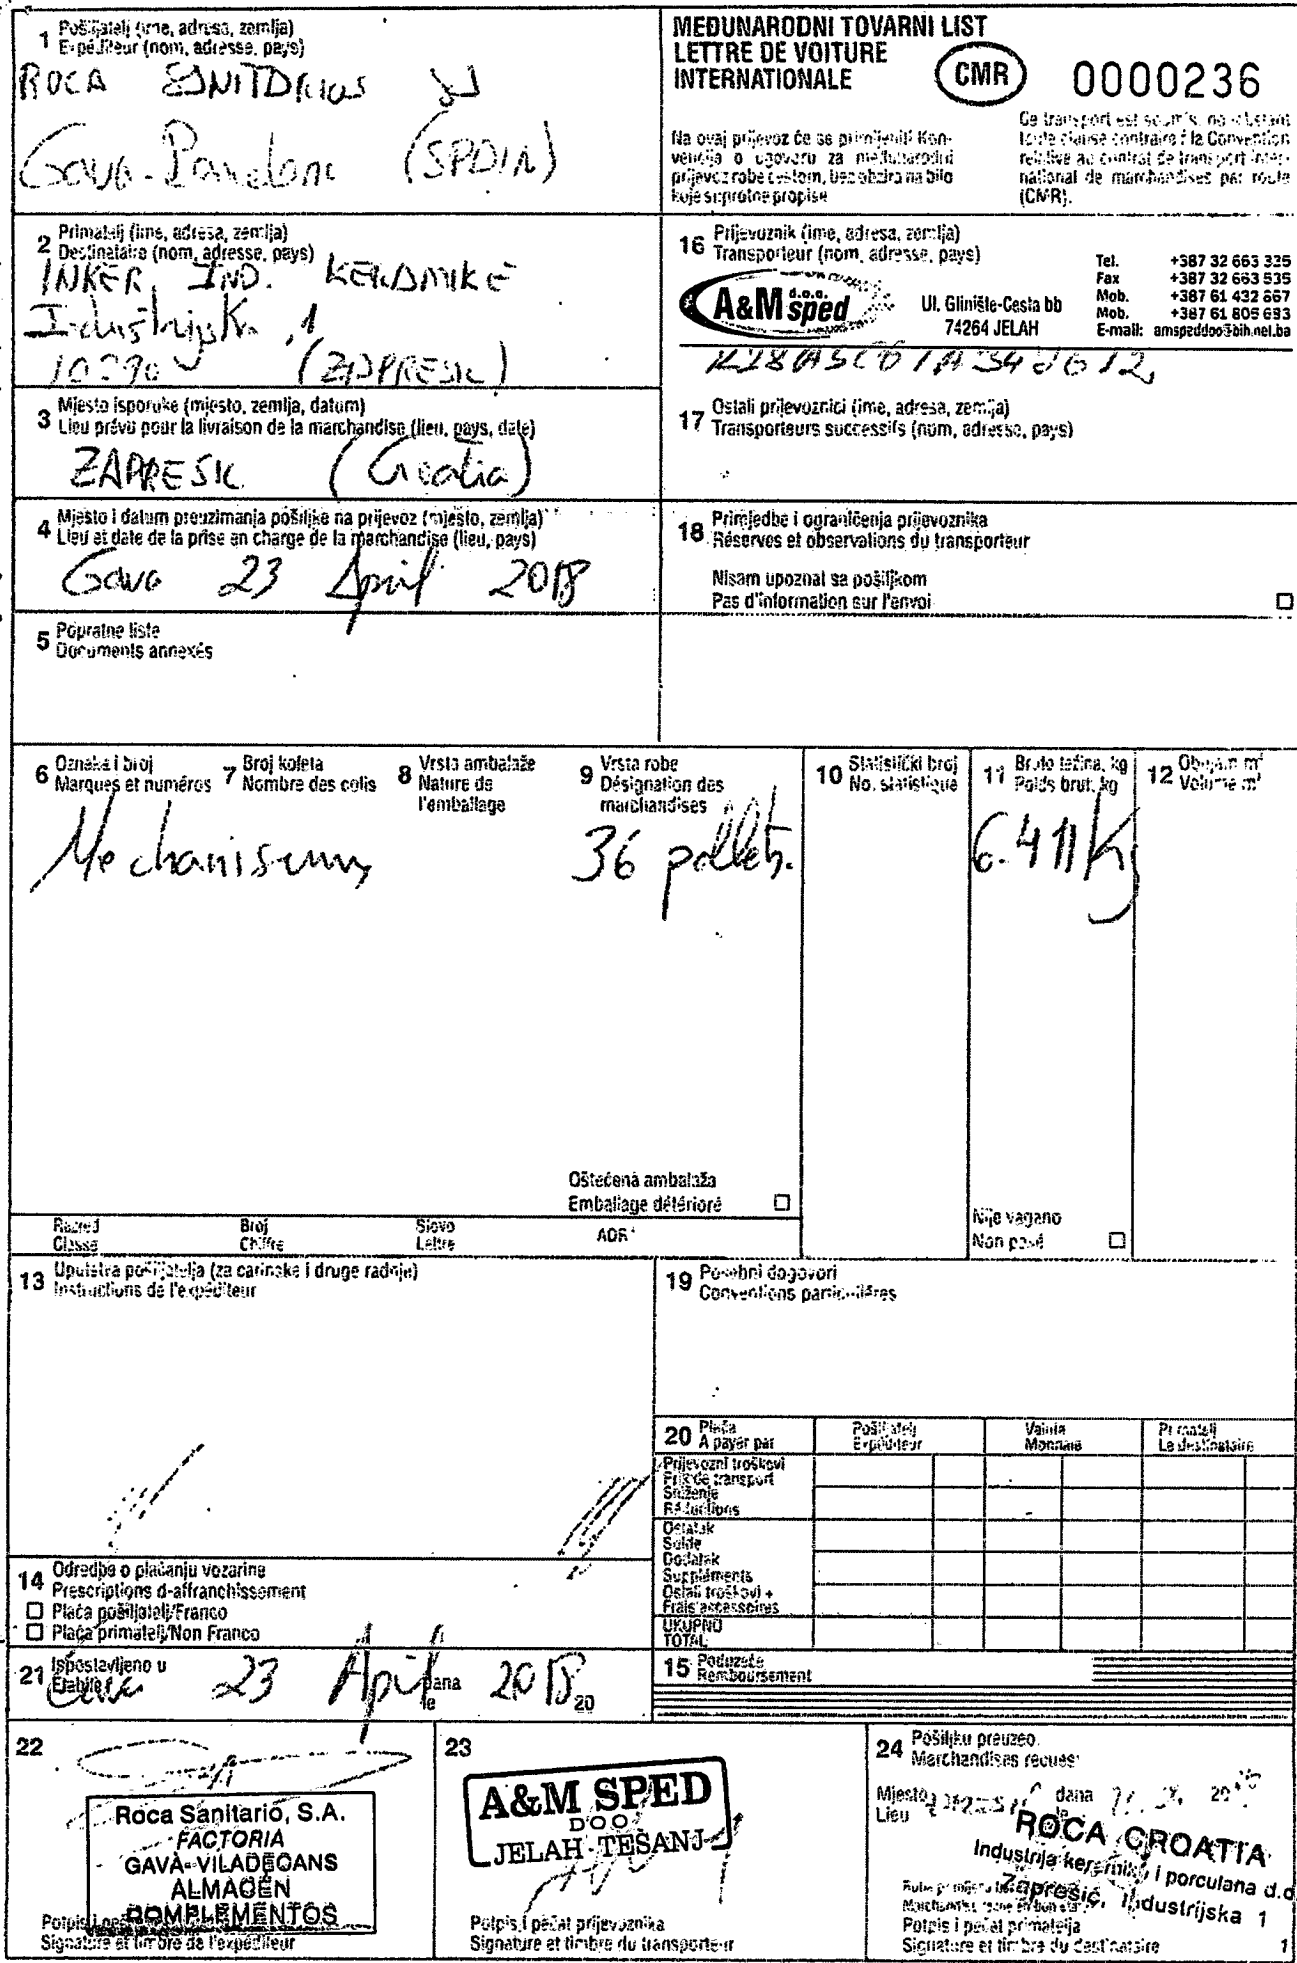 1 Pošiljatelj (ime, adresa, zemlja)
Expéditeur (nom, adresse, pays)
ROCA
Gava- (SPAIN)
MEĐUNARODNI TOVARNI LIST
LETTRE DE VOITURE
INTERNATIONALE
CMR
0000236
Na ovaj prijevoz će se primijeniti Kon-
vencija o ugovoru za međunarodni
prijevoz robe cestom, bez obzira na bilo
koje suprotne propise
Ce transport est soumis, nonobstant
toute clause contraire à la Convention
relative au contrat de transport inter-
national de marchandises par route
(CMR).
2 Primatelj (ime, adresa, zemlja)
Destinataire (nom, adresse, pays)
INKER IND. KERAMIKE
Industrijska, 1
10290 (ZAPRESIC)
16 Prijevoznik (ime, adresa, zemlja)
Transporteur (nom, adresse, pays)
A&M d.o.o. sped
Ul. Glinište-Cesta bb
74264 JELAH
Tel. +387 32 663 335
Fax +387 32 663 535
Mob. +387 61 432 667
Mob. +387 61 805 693
E-mail: amspeddoo@bih.net.ba
3 Mjesto isporuke (mjesto, zemlja, datum)
Lieu prévu pour la livraison de la marchandise (lieu, pays, date)
ZAPRESIC (Croatia)
17 Ostali prijevoznici (ime, adresa, zemlja)
Transporteurs successifs (nom, adresse, pays)
4 Mjesto i datum preuzimanja pošiljke na prijevoz (mjesto, zemlja)
Lieu et date de la prise en charge de la marchandise (lieu, pays)
Gava 23 April 2018
18 Primjedbe i ograničenja prijevoznika
Réserves et observations du transporteur
Nisam upoznat sa pošiljkom
Pas d'information sur l'envoi
5 Popratne liste
Documents annexés
6 Oznaka i broj
Marques et numéros
7 Broj koleta
Nombre des colis
8 Vrsta ambalaže
Nature de
l'emballage
9 Vrsta robe
Désignation des
marchandises
10 Statistički broj
No. statistique
11 Bruto težina, kg
Poids brut, kg
12 Obujam m³
Volume m³
36 pallets.
6.411 Kg
Oštećena ambalaža
Emballage détérioré
Razred
Classe
Broj
Chiffre
Slovo
Lettre
ADR
Nije vagano
Non pesé
13 Uputstva pošiljatelja (za carinske i druge radnje)
Instructions de l'expéditeur
19 Posebni dogovori
Conventions particulières
20 Plaća
A payer par
Pošiljatelj
Expéditeur
Valuta
Monnaie
Primatelj
Le destinataire
Prijevozni troškovi
Frais de transport
Sniženje
Réductions
Ostatak
Solde
Dodatak
Suppléments
Ostali troškovi +
Frais accessoires
UKUPNO
TOTAL
14 Odredba o plaćanju vozarine
Prescriptions d-affranchissement
Plaća pošiljatelj/Franco
Plaća primatelj/Non Franco
21 Ispostavljeno u
Gava 23 April dana
le 2018 20
15 Poduzeće
Remboursement
22
Roca Sanitario, S.A.
FACTORIA
GAVÀ-VILADECANS
ALMACÉN
COMPLEMENTOS
Signature et timbre de l'expéditeur
23
A&M SPED
DOO
JELAH-TEŠANJ
Potpis i pečat prijevoznika
Signature et timbre du transporteur
24 Pošiljku preuzeo
Marchandises reçues
Mjesto dana
Lieu
ROCA CROATIA
Industrija keramike i porculana d.o
Zaprešić, Industrijska 1
Potpis i pečat primatelja
Signature et timbre du destinataire
1